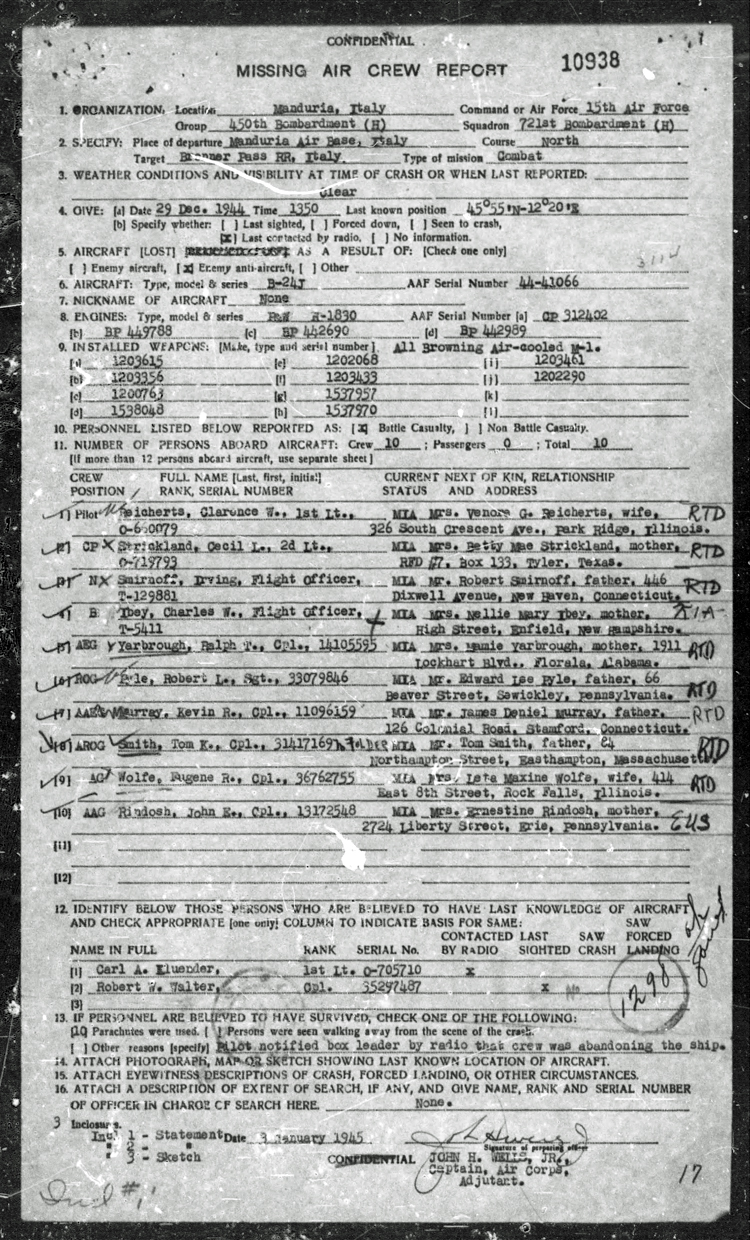 CONFIDENTIAL
MISSING AIR CREW REPORT 10938
1. ORGANIZATION: Location Manduria, Italy Command or Air Force 15th Air Force
Group 450th Bombardment (H) Squadron 721st Bombardment (H)
2. SPECIFY: Place of departure Manduria Air Base, Italy Course North
Target Brenner Pass RR, Italy Type of mission Combat
3. WEATHER CONDITIONS AND VISIBILITY AT TIME OF CRASH OR WHEN LAST REPORTED:
Clear
4. GIVE: [a] Date 29 Dec. 1944 Time 1350 Last known position 45°55'N-12°20'E
[b] Specify whether: [ ] Last sighted, [ ] Forced down, [ ] Seen to crash,
[x] Last contacted by radio, [ ] No information.
5. AIRCRAFT [LOST] AS A RESULT OF: [Check one only]
3114
[ ] Enemy aircraft, [x] Enemy anti-aircraft, [ ] Other
6. AIRCRAFT: Type, model & series B-24J AAF Serial Number 44-41066
7. NICKNAME OF AIRCRAFT None
8. ENGINES: Type, model & series P&W R-1830 AAF Serial Number [a] CP 312402
[b] BP 449788 [c] BP 442690 [d] BP 442989
9. INSTALLED WEAPONS: [Make, type and serial number] All Browning Air-cooled M-1.
[a] 1203615 [e] 1202068 [i] 1203461
[b] 1203356 [f] 1203433 [j] 1202290
[c] 1200763 [g] 1537957 [k]
[d] 1538048 [h] 1537970 [l]
10. PERSONNEL LISTED BELOW REPORTED AS: [X] Battle Casualty, [ ] Non Battle Casualty.
11. NUMBER OF PERSONS ABOARD AIRCRAFT: Crew 10 ; Passengers 0 ; Total 10
[If more than 12 persons aboard aircraft, use separate sheet]
CREW FULL NAME [Last, first, initial] CURRENT NEXT OF KIN, RELATIONSHIP
POSITION RANK, SERIAL NUMBER STATUS AND ADDRESS
[1] Pilot Reicherts, Clarence W., 1st Lt., MIA Mrs. Venore G. Reicherts, wife, RTD
O-690079 326 South Crescent Ave., Park Ridge, Illinois.
[2] CP Strickland, Cecil L., 2d Lt., MIA Mrs. Betty Mae Strickland, mother, RTD
O-719793 RFD #7, Box 133, Tyler, Texas.
[3] N Smirnoff, Irving, Flight Officer, MIA Mr. Robert Smirnoff, father, 446 RTD
T-129881 Dixwell Avenue, New Haven, Connecticut.
[4] B Ibey, Charles W., Flight Officer, MIA Mrs. Nellie Mary Ibey, mother, KIA
T-5411 High Street, Enfield, New Hampshire.
[5] AEG Yarbrough, Ralph T., Cpl., 14105595 MIA Mrs. Mamie Yarbrough, mother, 1911 RTD
Lockhart Blvd., Florala, Alabama.
[6] ROG Pyle, Robert L., Sgt., 33079846 MIA Mr. Edward Lee Pyle, father, 66 RTD
Beaver Street, Sewickley, Pennsylvania.
[7] AAEG Murray, Kevin R., Cpl., 11096159 MIA Mr. James Deniel Murray, father, RTD
126 Colonial Road, Stamford, Connecticut.
[8] AROG Smith, Tom K., Cpl., 31417169 MIA Mr. Tom Smith, father, 24 RTD
Northampton Street, Easthampton, Massachusetts
[9] AG Wolfe, Eugene R., Cpl., 36762755 MIA Mrs. Leta Maxine Wolfe, wife, 414 RTD
East 8th Street, Rock Falls, Illinois.
[10] AAG Rindosh, John E., Cpl., 13172548 MIA Mrs. Ernestine Rindosh, mother, EUS
2724 Liberty Street, Erie, Pennsylvania.
[11]
[12]
12. IDENTIFY BELOW THOSE PERSONS WHO ARE BELIEVED TO HAVE LAST KNOWLEDGE OF AIRCRAFT
AND CHECK APPROPRIATE [one only] COLUMN TO INDICATE BASIS FOR SAME: SAW
CONTACTED LAST SAW FORCED
NAME IN FULL RANK SERIAL No. BY RADIO SIGHTED CRASH LANDING
[1] Carl A. Kluender, 1st Lt. O-705710 x
[2] Robert W. Walter, Cpl. 35297487 x No
[3]
1298
13. IF PERSONNEL ARE BELIEVED TO HAVE SURVIVED, CHECK ONE OF THE FOLLOWING:
[10] Parachutes were used. [ ] Persons were seen walking away from the scene of the crash.
[ ] Other reasons [specify] Pilot notified box leader by radio that crew was abandoning the ship.
14. ATTACH PHOTOGRAPH, MAP OR SKETCH SHOWING LAST KNOWN LOCATION OF AIRCRAFT.
15. ATTACH EYEWITNESS DESCRIPTIONS OF CRASH, FORCED LANDING, OR OTHER CIRCUMSTANCES.
16. ATTACH A DESCRIPTION OF EXTENT OF SEARCH, IF ANY, AND GIVE NAME, RANK AND SERIAL NUMBER
OF OFFICER IN CHARGE OF SEARCH HERE. None.
3 Inclosures.
Incl 1 - Statement Date 3 January 1945
" 2 - "
Signature of preparing officer
" 3 - Sketch CONFIDENTIAL JOHN H. WELLS, JR.,
Captain, Air Corps,
Adjutant.
17
Incl #1